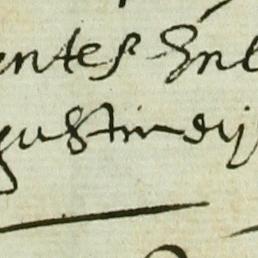 entes En l
gustin dij